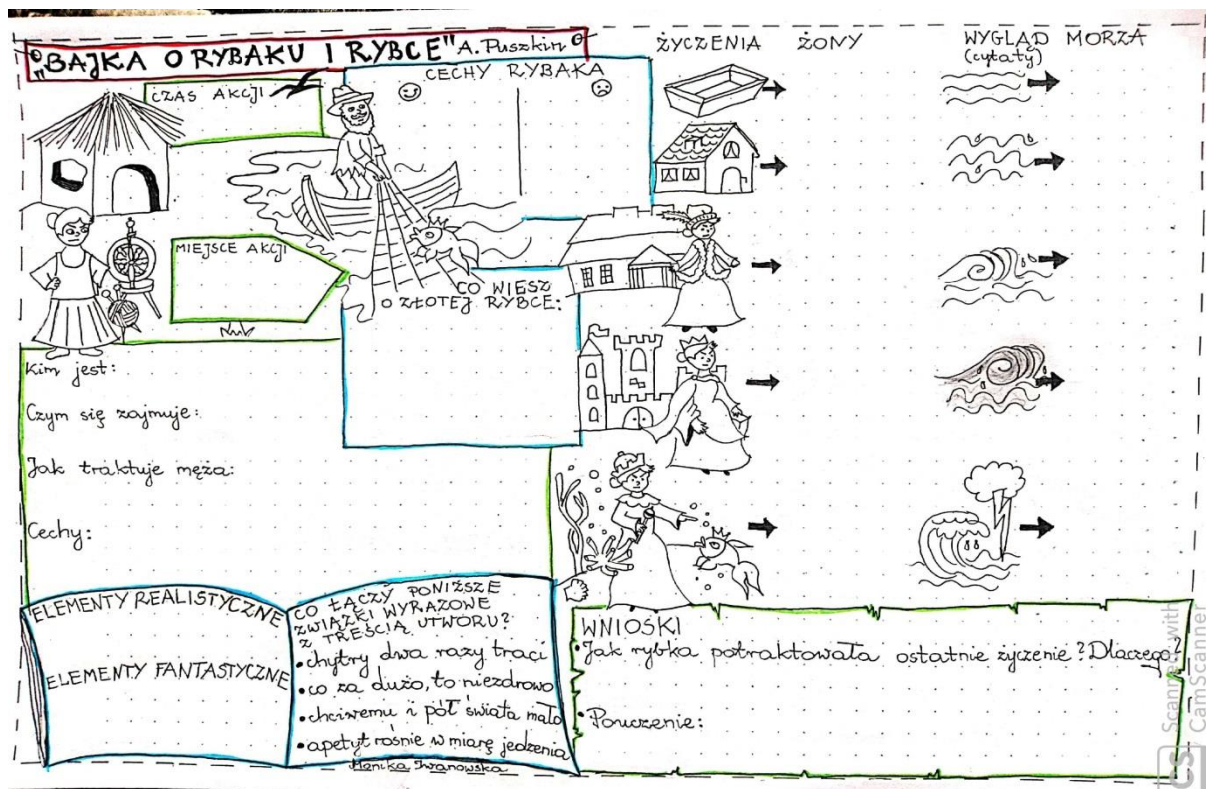 "BAJKA O RYBAKU I RYBCE" A. Puszkin
CZAS AKCJI
CECHY RYBAKA
MIEJSCE AKCJI
CO WIESZ
O ZŁOTEJ RYBCE:
Kim jest:
Czym się zajmuje:
Jak traktuje męża:
Cechy:
ELEMENTY REALISTYCZNE
ELEMENTY FANTASTYCZNE
CO ŁĄCZY PONIŻSZE
ZWIĄZKI WYRAZOWE
Z TREŚCIĄ UTWORU?
• chytry dwa razy traci
• co za dużo, to niezdrowo
• chciwemu i pół świata mało
• apetyt rośnie w miarę jedzenia
Monika Iwanowska
ŻYCZENIA ŻONY
WYGLĄD MORZA
(cytaty)
WNIOSKI
• Jak rybka potraktowała ostatnie życzenie? Dlaczego?
• Pouczenie:
CS Scanned with
CamScanner